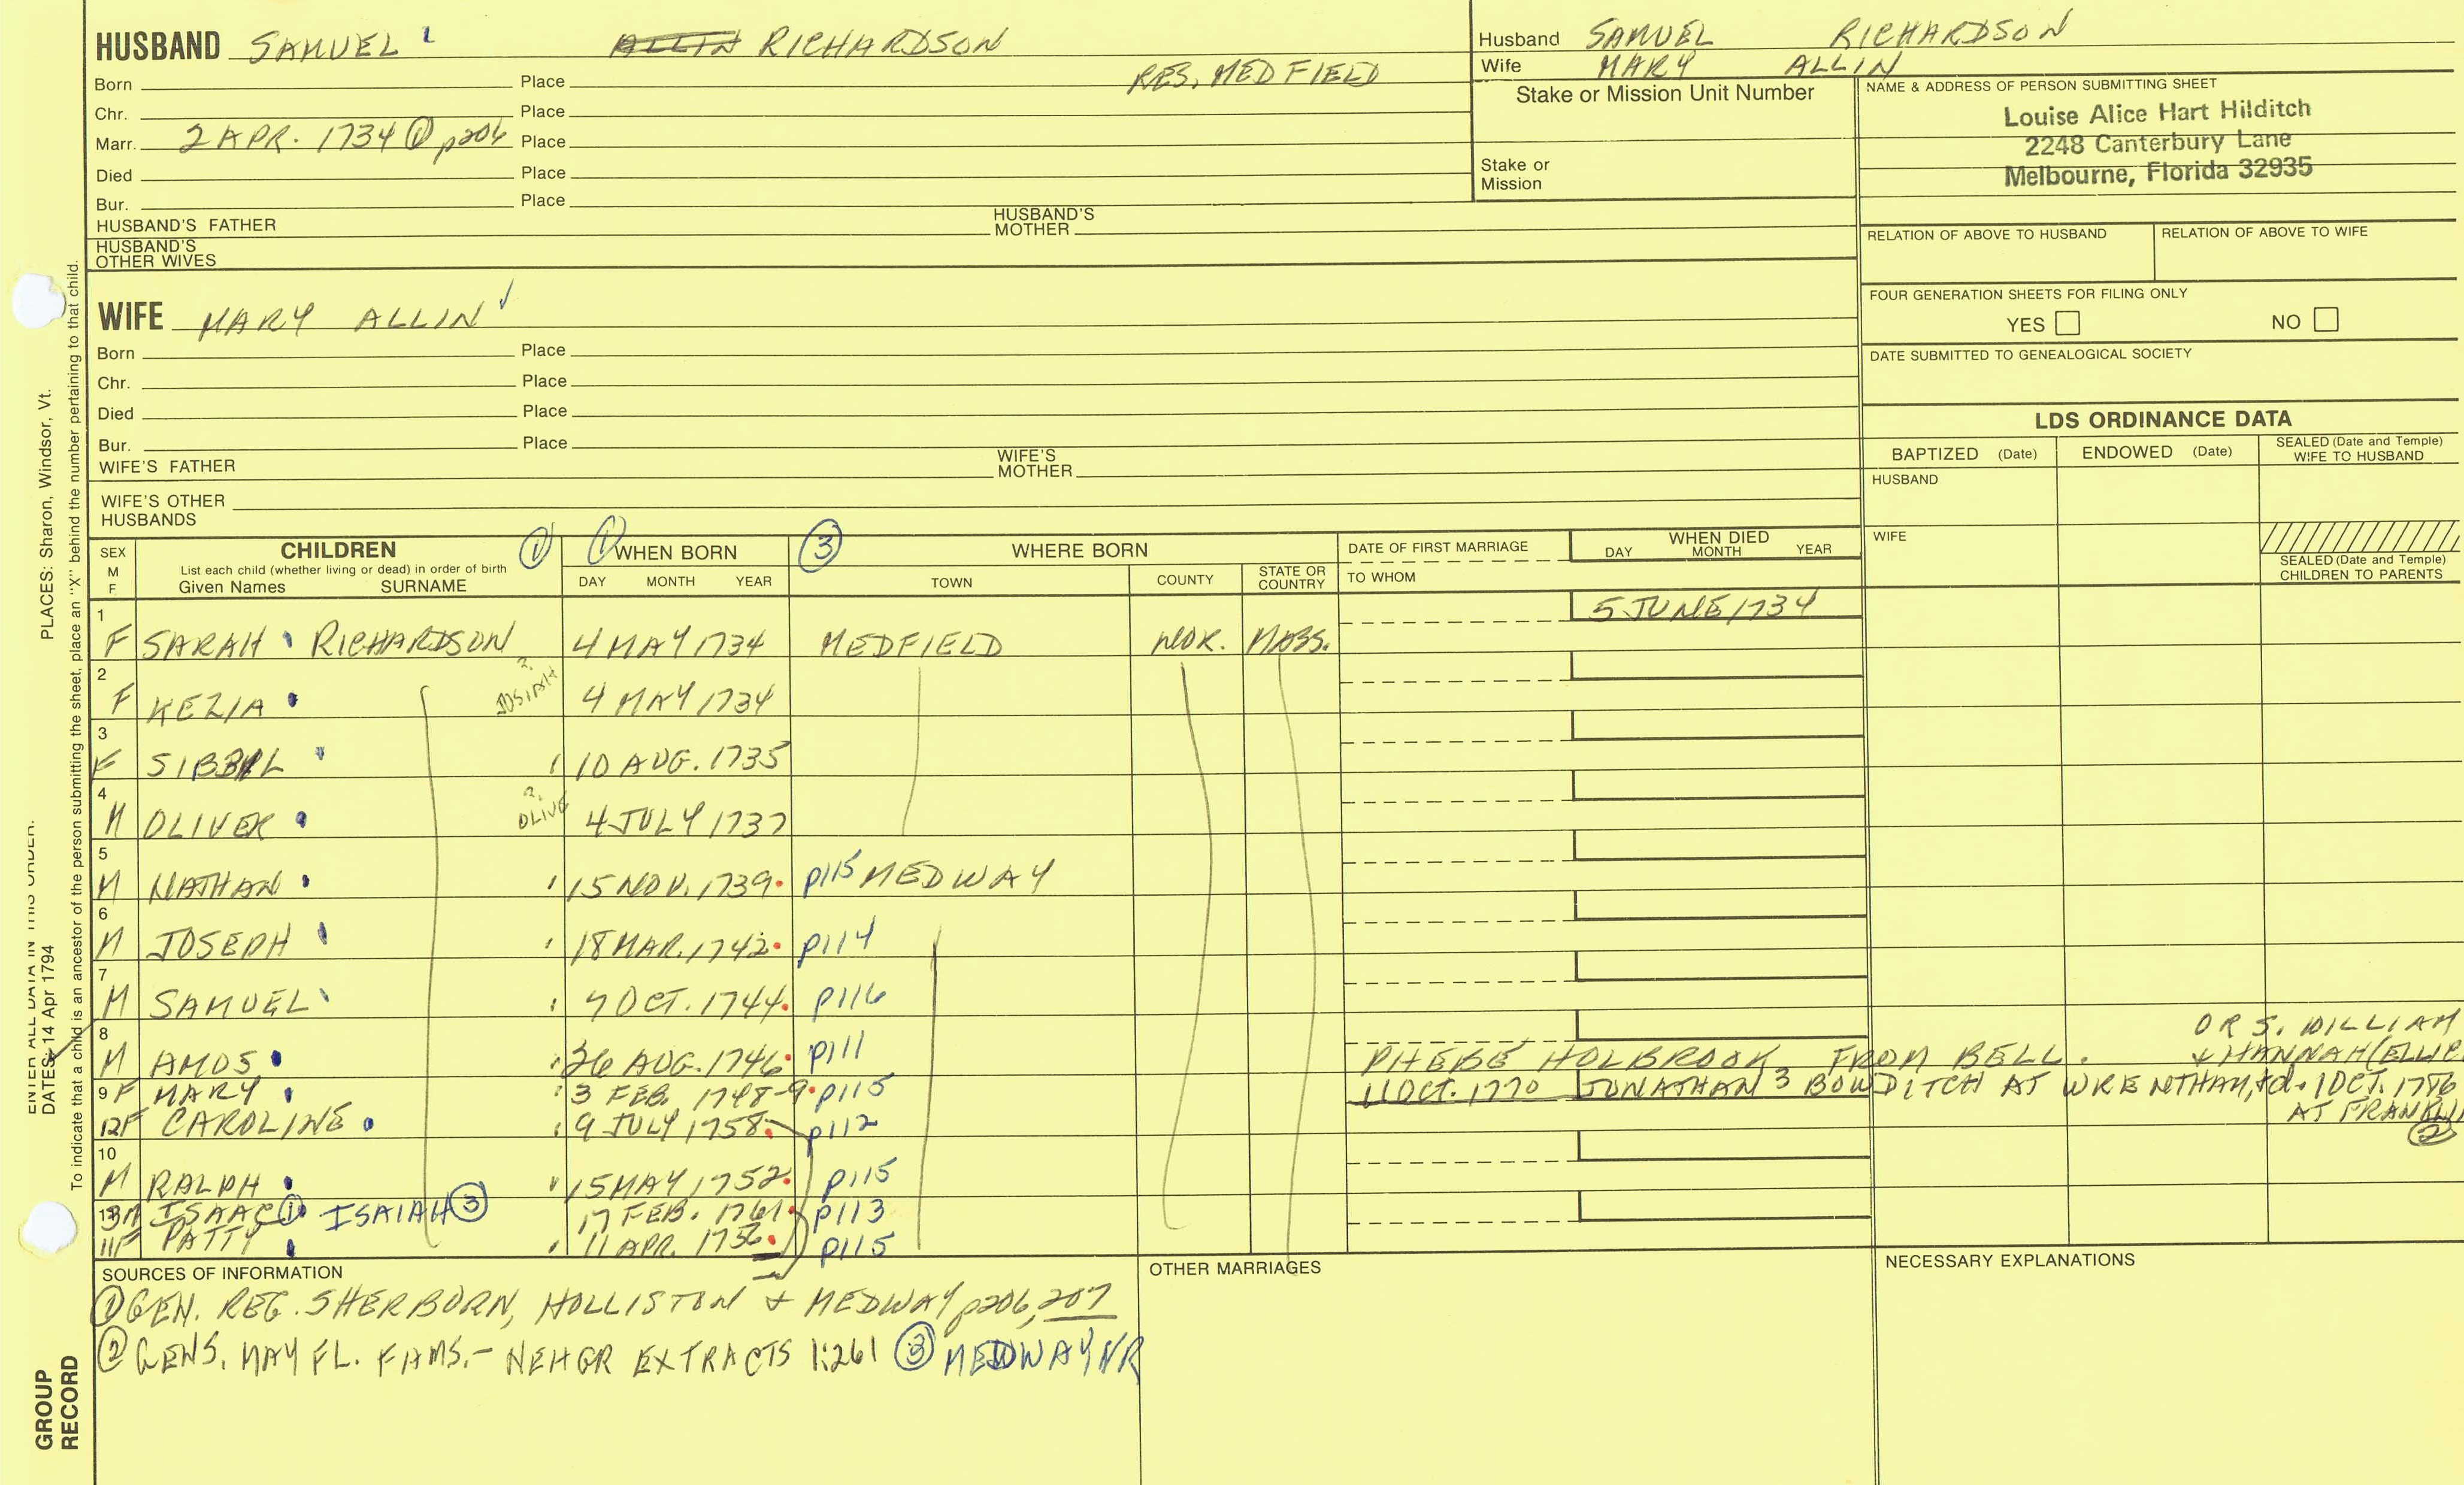 HUSBAND SAMUEL ALLIN RICHARDSON
RES. MEDFIELD
Born Place
Chr. Place
Marr. 2 APR. 1734 ① p206 Place
Died Place
Bur. Place
HUSBAND'S FATHER HUSBAND'S MOTHER
HUSBAND'S OTHER WIVES
Husband SAMUEL RICHARDSON
Wife MARY ALLIN
Stake or Mission Unit Number
Stake or Mission
NAME & ADDRESS OF PERSON SUBMITTING SHEET
Louise Alice Hart Hilditch
2248 Canterbury Lane
Melbourne, Florida 32935
RELATION OF ABOVE TO HUSBAND RELATION OF ABOVE TO WIFE
FOUR GENERATION SHEETS FOR FILING ONLY
YES NO
DATE SUBMITTED TO GENEALOGICAL SOCIETY
WIFE MARY ALLIN
Born Place
Chr. Place
Died Place
Bur. Place
WIFE'S FATHER WIFE'S MOTHER
WIFE'S OTHER HUSBANDS
LDS ORDINANCE DATA
BAPTIZED (Date) ENDOWED (Date) SEALED (Date and Temple) WIFE TO HUSBAND
HUSBAND
WIFE
SEALED (Date and Temple) CHILDREN TO PARENTS
SEX M F
CHILDREN ①
List each child (whether living or dead) in order of birth
Given Names SURNAME
① WHEN BORN
DAY MONTH YEAR
③ WHERE BORN
TOWN COUNTY STATE OR COUNTRY
DATE OF FIRST MARRIAGE
TO WHOM
WHEN DIED
DAY MONTH YEAR
1 F SARAH RICHARDSON 4 MAY 1734 MEDFIELD NOR. MASS. 5 JUNE 1734
2 F KEZIA JOSIAH ? 4 MAY 1734
3 F SIBBEL 10 AUG. 1735
4 M OLIVER OLIVE ? 4 JULY 1737
5 M NATHAN 15 NOV. 1739 p115 MEDWAY
6 M JOSEPH 18 MAR. 1742 p114
7 M SAMUEL 7 OCT. 1744 p116
8 M AMOS 26 AUG. 1746 p111 PHEBE HOLBROOK FROM BELL. OR S. WILLIAM
& HANNAH (ELLIE
9 F MARY 3 FEB. 1748-9 p115 11 OCT. 1770 JONATHAN 3 BOWDITCH AT WRENTHAM, d. 1 OCT. 1786
AT FRANKLI ②
12 F CAROLINE 9 JULY 1758 p112
10 M RALPH 15 MAY 1752 p115
13 M ISAAC ① ISAIAH ③ 17 FEB. 1761 p113
11 F PATTY 11 APR. 1756 p115
SOURCES OF INFORMATION
① GEN. REG. SHERBORN, HOLLISTON & MEDWAY p206, 207
② GENS. MAY FL. FAMS. - NEHGR EXTRACTS 1:261 ③ MEDWAY VR
OTHER MARRIAGES
NECESSARY EXPLANATIONS
PLACES: Sharon, Windsor, Vt.
To indicate that a child is an ancestor of the person submitting the sheet, place an "X" behind the number pertaining to that child.
ENTER ALL DATA IN THIS ORDER:
DATES: 14 Apr 1794
GROUP RECORD